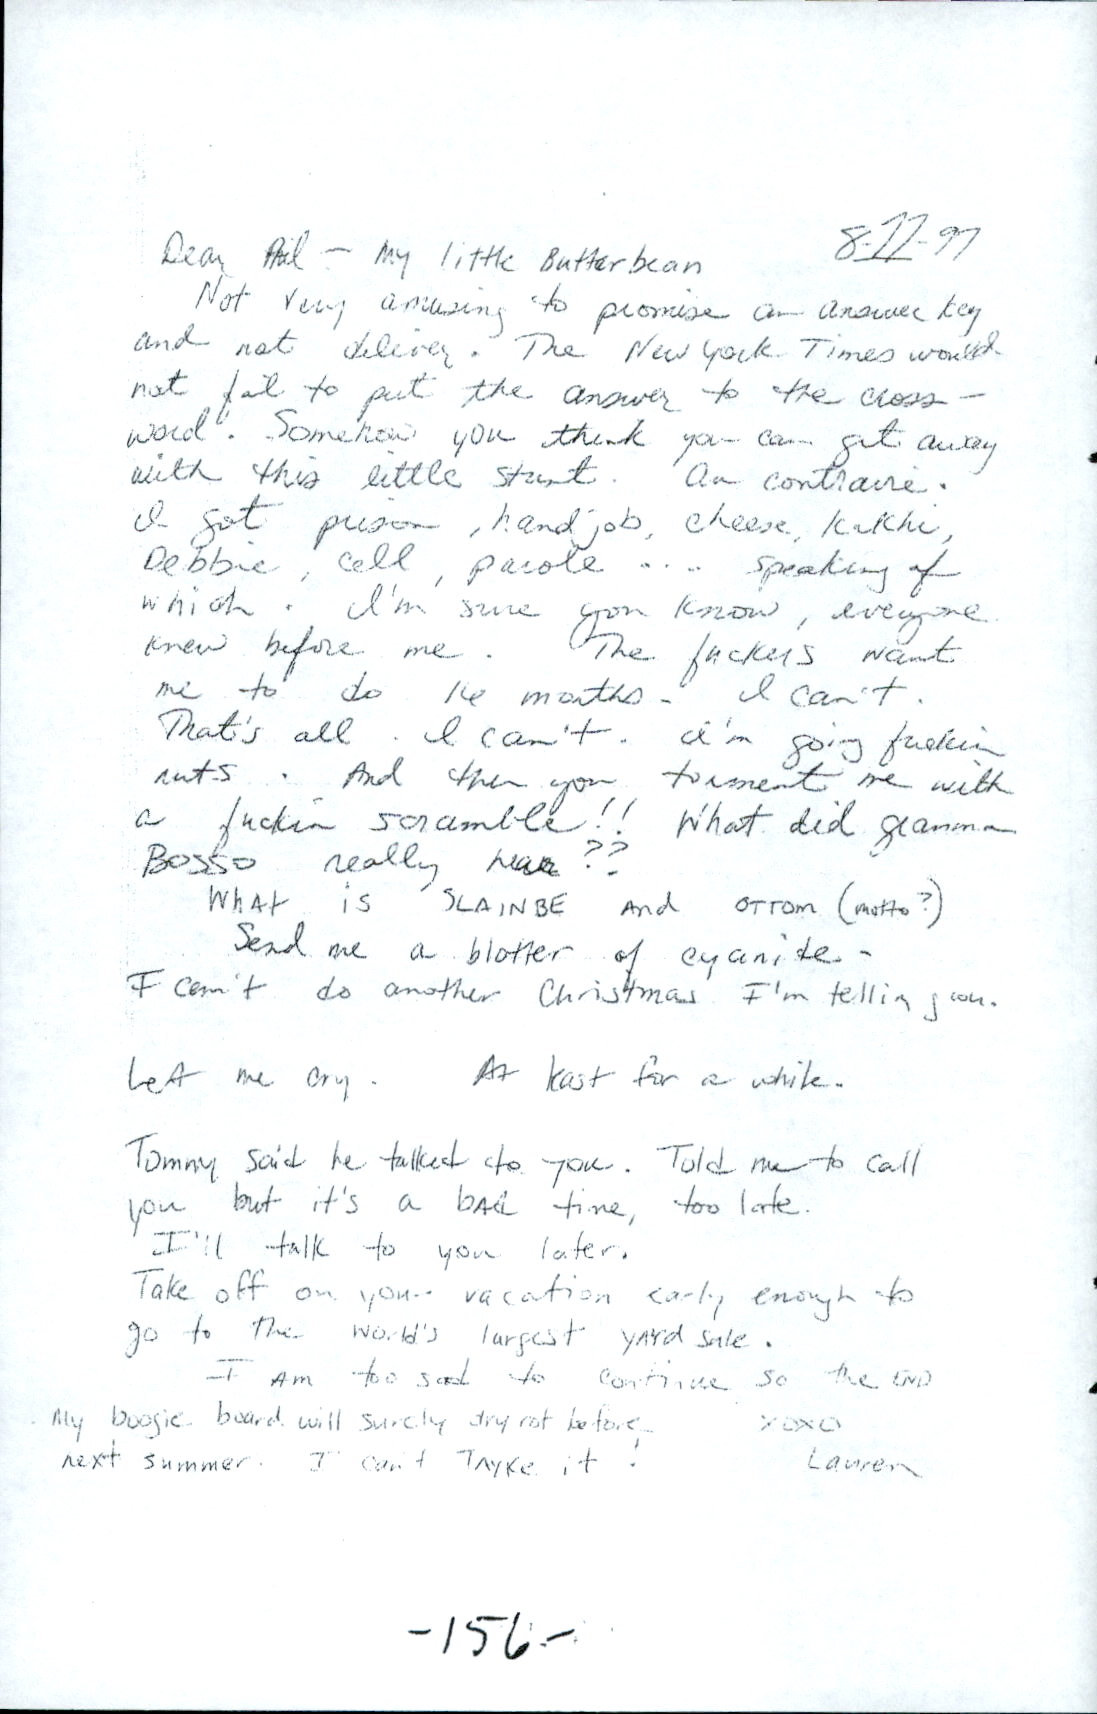 8-11-97
Dear Phil - My little Butterbean
Not very amusing to promise an answer key
and not deliver. The New York Times would
not fail to put the answer to the cross-
word. Somehow you think you can get away
with this little stunt. Au contraire.
I got prison, handjob, cheese, Kakhi,
Debbie, cell, parole .... speaking of
which. I'm sure you know, everyone
knew before me. The fuckers want
me to do 14 months - I can't.
That's all. I can't. I'm going fuckin
nuts. And then you torment me with
a fuckin scramble!! What did gramma
Bosso really hear??
What is SLAINBE and OTTOM (motto?)
Send me a blotter of cyanide -
I can't do another Christmas I'm telling you.
Let me cry. At least for a while.
Tommy said he talked to you. Told me to call
you but it's a bad time, too late.
I'll talk to you later.
Take off on your vacation early enough to
go to the world's largest yard sale.
I Am too sad to continue so the END
My boogie board will surely dry rot before
next summer. I can't TAyKe it!
xoxo
Lauren
-156-